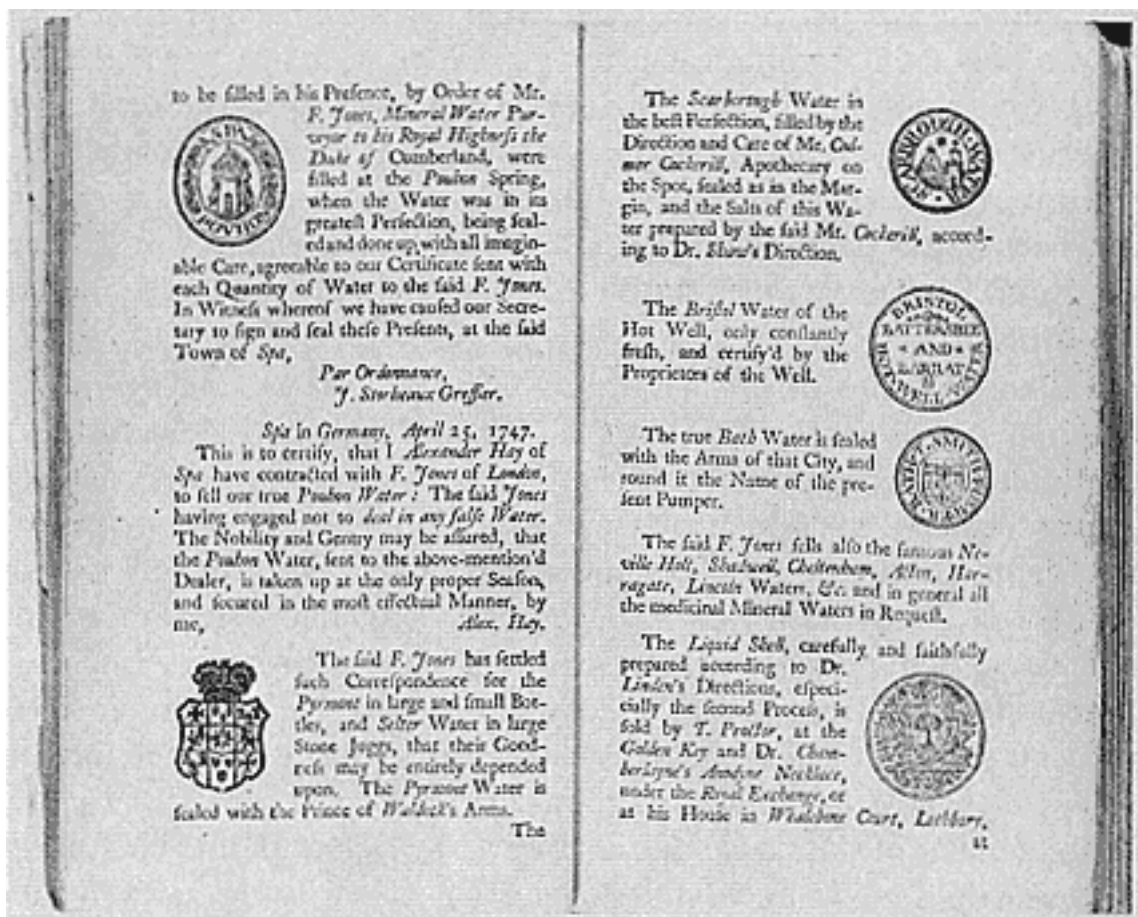 to be filled in his Presence, by Order of Mr.
F. Jones, Mineral Water Pur-
veyor to his Royal Highneſs the
Duke of Cumberland, were
filled at the Pouhon Spring,
when the Water was in its
greateſt Perfection, being ſeal-
ed and done up with all imagin-
able Care, agreeable to our Certificate ſent with
each Quantity of Water to the ſaid F. Jones.
In Witneſs whereof we have cauſed our Secre-
tary to ſign and ſeal theſe Preſents, at the ſaid
Town of Spa,
Par Ordonnance,
J. Storheaux Greffier.
Spa in Germany, April 25, 1747.
This is to certify, that I Alexander Hay of
Spa have contracted with F. Jones of London,
to ſell our true Pouhon Water: The ſaid Jones
having engaged not to deal in any falſe Water.
The Nobility and Gentry may be aſſured, that
the Pouhon Water, ſent to the above-mention'd
Dealer, is taken up at the only proper Seaſon,
and ſecured in the moſt effectual Manner, by
me, Alex. Hay.
The ſaid F. Jones has ſettled
ſuch Correſpondence for the
Pyrmont in large and ſmall Bot-
tles, and Selter Water in large
Stone Juggs, that their Good-
neſs may be entirely depended
upon. The Pyrmont Water is
ſealed with the Prince of Waldeck's Arms.
The
The Scarborough Water in
the beſt Perfection, filled by the
Direction and Care of Mr. Cul-
mer Cockerill, Apothecary on
the Spot, ſealed as in the Mar-
gin, and the Salts of this Wa-
ter prepared by the ſaid Mr. Cockerill, accord-
ing to Dr. Shaw's Direction.
The Briſtol Water of the
Hot Well, only conſtantly
freſh, and certify'd by the
Proprietors of the Well.
BRISTOL
AND
HOT-WELL WATER
The true Bath Water is ſealed
with the Arms of that City, and
round it the Name of the pre-
ſent Pumper.
The ſaid F. Jones ſells alſo the famous Ne-
ville Holt, Shadwell, Cheltenham, Acton, Har-
ragate, Lincoln Waters, &c. and in general all
the medicinal Mineral Waters in Requeſt.
The Liquid Shell, carefully and faithfully
prepared according to Dr.
Linden's Directions, eſpeci-
cially the ſecond Proceſs, is
ſold by T. Proctor, at the
Golden Key and Dr. Cham-
berlayne's Anodyne Necklace,
under the Royal Exchange, or
at his Houſe in Whalebone Court, Lothbury,
at